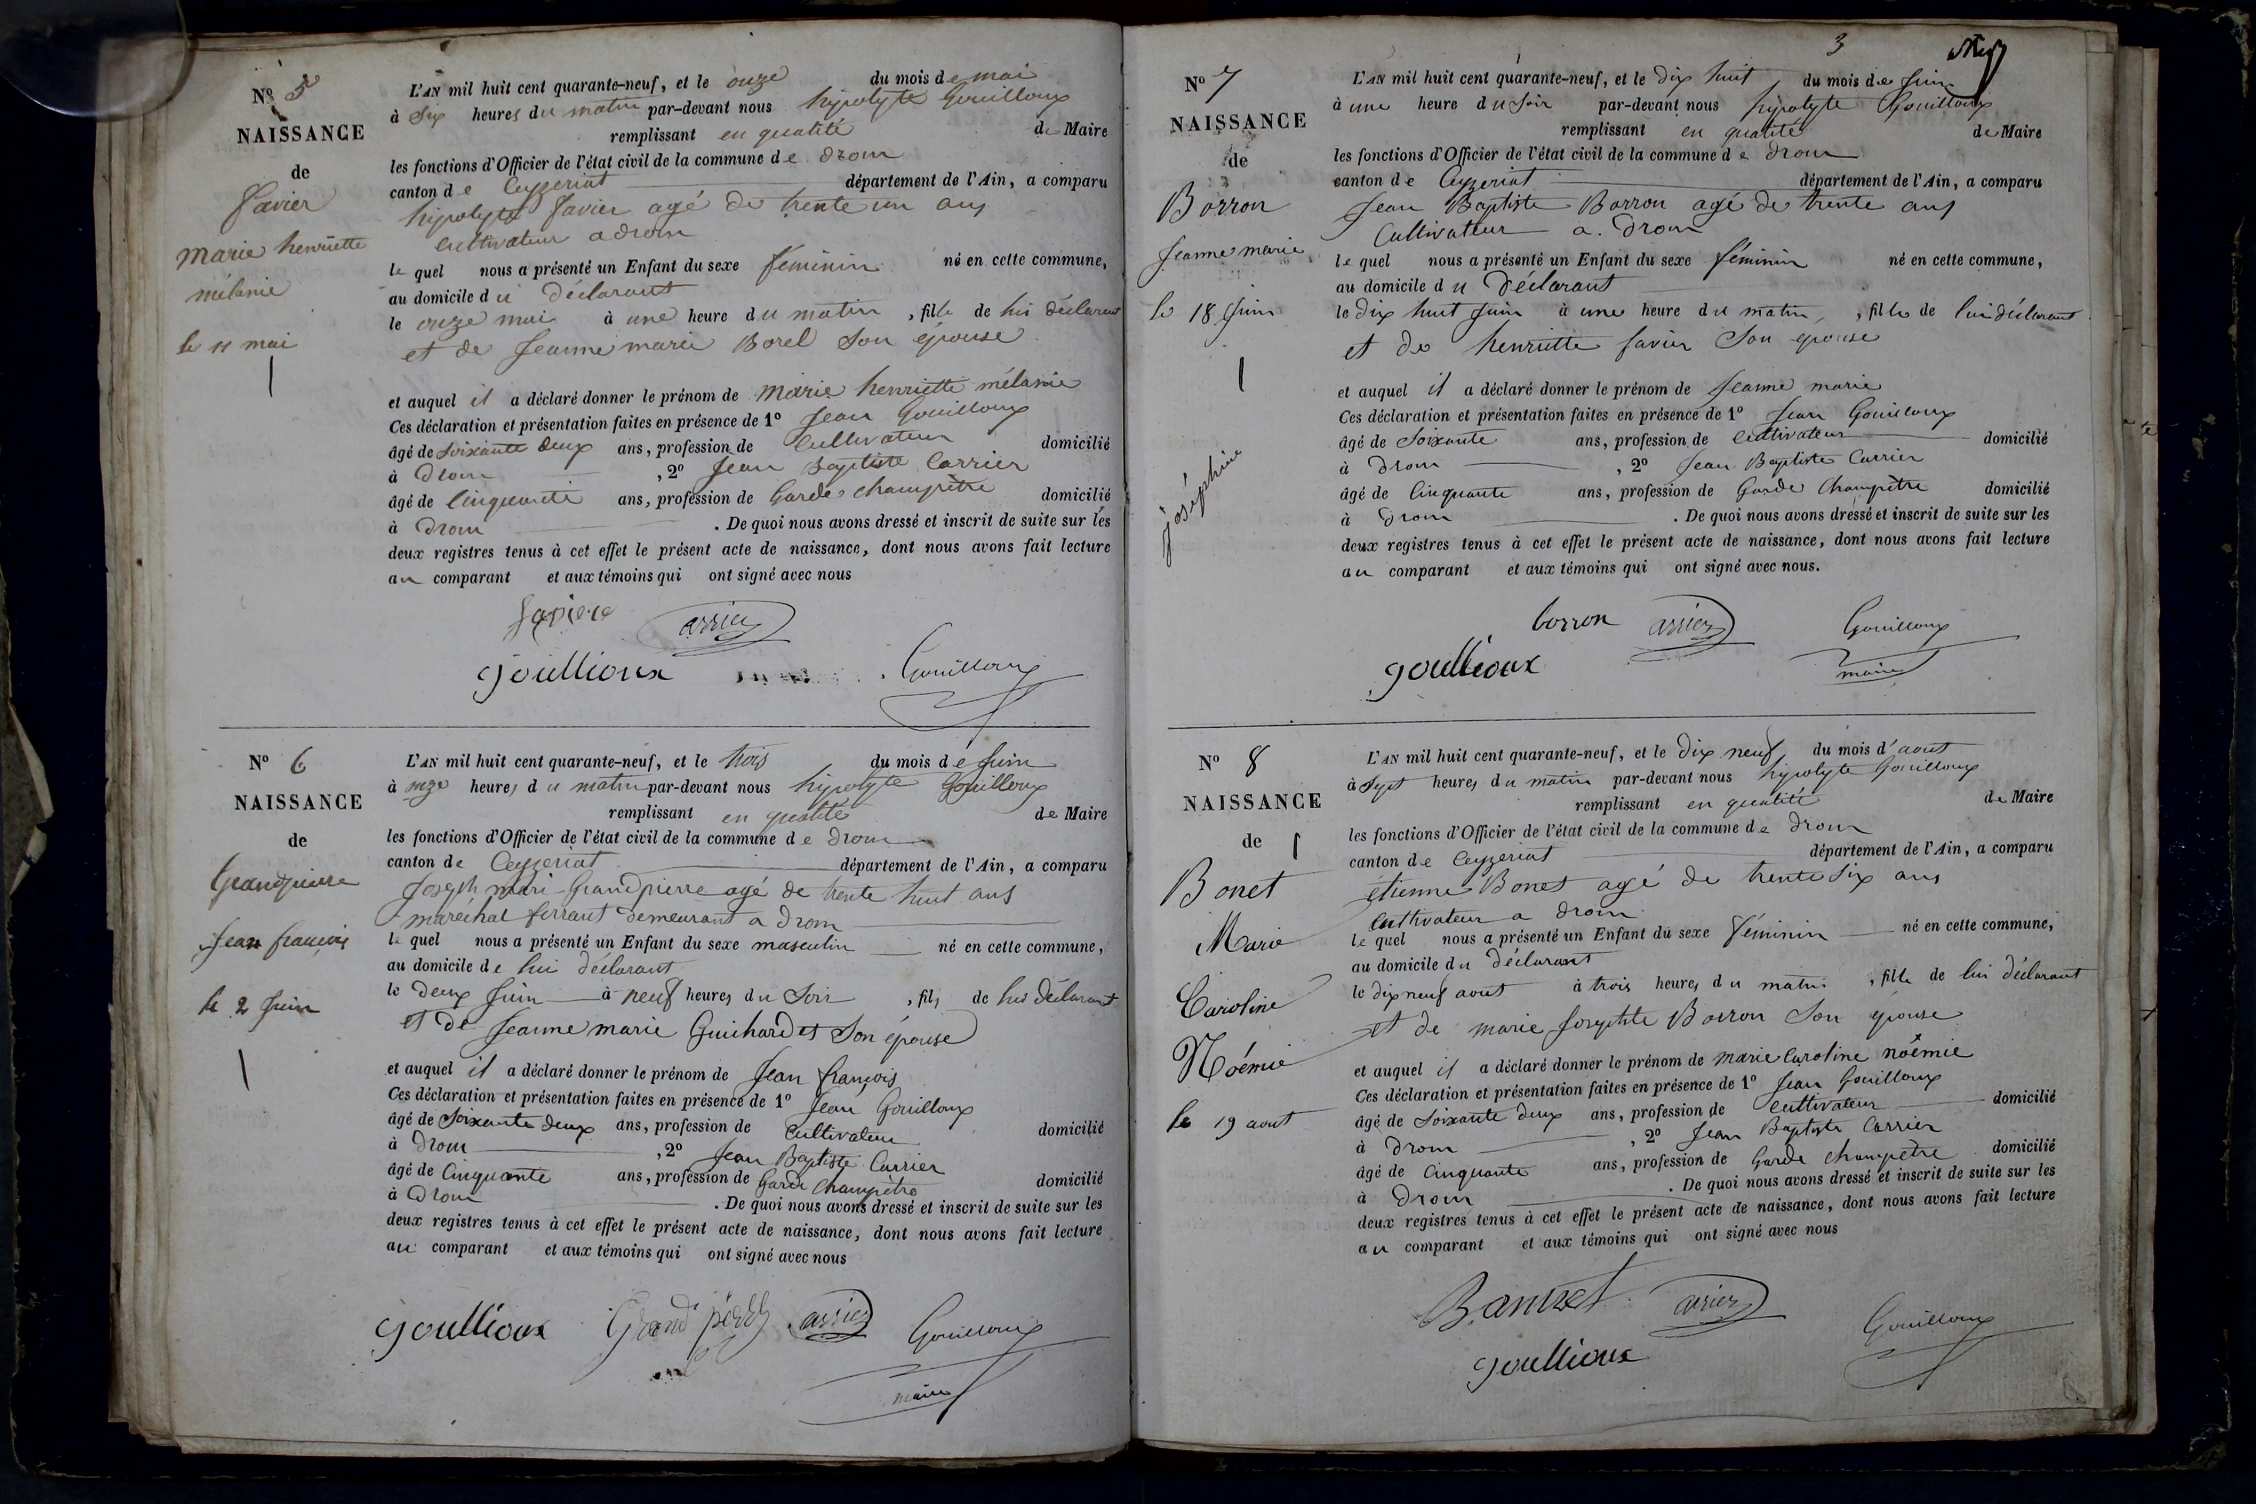 Nº 5
NAISSANCE
de
favier
marie henriette
mélanie
le 11 mai
L'AN mil huit cent quarante-neuf, et le onze du mois de mai
à Six heures du matin par-devant nous hipolyte Gouilloux
remplissant en qualité de Maire
les fonctions d'Officier de l'état civil de la commune de drom
canton de Ceyzeriat département de l'Ain, a comparu
hipolyte favier agé de trente un ans
cultivateur a drom
le quel nous a présenté un Enfant du sexe féminin né en cette commune,
au domicile du déclarant
le onze mai à une heure du matin, fille de lui déclarant
et de Jeanne marie Borel Son épouse
et auquel il a déclaré donner le prénom de marie henriette mélanie
Ces déclaration et présentation faites en présence de 1º Jean Gouilloux
âgé de Soixante deux ans, profession de cultivateur domicilié
à drom, 2º Jean Baptiste Carrier
âgé de Cinquante ans, profession de Garde champêtre domicilié
à drom. De quoi nous avons dressé et inscrit de suite sur les
deux registres tenus à cet effet le présent acte de naissance, dont nous avons fait lecture
au comparant et aux témoins qui ont signé avec nous
arrier
goullioux Gouilloux
Nº 6
NAISSANCE
de
Grandpierre
Jean françois
le 2 Juin
L'AN mil huit cent quarante-neuf, et le trois du mois de Juin
à onze heures du matin par-devant nous hipolyte Gouilloux
remplissant en qualité de Maire
les fonctions d'Officier de l'état civil de la commune de drom
canton de Ceyzeriat département de l'Ain, a comparu
Joseph mari Grandpierre agé de trente huit ans
maréchal ferrant demeurant a drom
le quel nous a présenté un Enfant du sexe masculin né en cette commune,
au domicile de lui déclarant
le deux Juin à neuf heures du Soir, fils de lui déclarant
et de Jeanne marie Guichardet Son épouse
et auquel il a déclaré donner le prénom de Jean françois
Ces déclaration et présentation faites en présence de 1º Jean Gouilloux
âgé de Soixante deux ans, profession de Cultivateur domicilié
à drom, 2º Jean Baptiste Carrier
âgé de Cinquante ans, profession de Garde champêtre domicilié
à drom. De quoi nous avons dressé et inscrit de suite sur les
deux registres tenus à cet effet le présent acte de naissance, dont nous avons fait lecture
au comparant et aux témoins qui ont signé avec nous
goullioux Grand arrier Gouilloux
maire
3
Nº 7
NAISSANCE
de
Borron
Jeanne marie
le 18 Juin
joséphine
L'AN mil huit cent quarante-neuf, et le dix huit du mois de Juin
à une heure du Soir par-devant nous hipolyte Gouilloux
remplissant en qualité de Maire
les fonctions d'Officier de l'état civil de la commune de drom
canton de Ceyzeriat département de l'Ain, a comparu
Jean Baptiste Borron agé de trente ans
Cultivateur a. drom
le quel nous a présenté un Enfant du sexe féminin né en cette commune,
au domicile du déclarant
le dix huit Juin à une heure du matin, fille de lui déclarant
et de henriette favier Son epouse
et auquel il a déclaré donner le prénom de Jeanne marie
Ces déclaration et présentation faites en présence de 1º Jean Gouilloux
âgé de Soixante ans, profession de cultivateur domicilié
à drom, 2º Jean Baptiste Carrier
âgé de Cinquante ans, profession de Garde Champêtre domicilié
à drom. De quoi nous avons dressé et inscrit de suite sur les
deux registres tenus à cet effet le présent acte de naissance, dont nous avons fait lecture
au comparant et aux témoins qui ont signé avec nous.
borron arrier Gouilloux
goullioux maire
Nº 8
NAISSANCE
de
Bonet
Marie
Caroline
Noémie
le 19 aout
L'AN mil huit cent quarante-neuf, et le dix neuf du mois d'aout
à Sept heures du matin par-devant nous hipolyte Gouilloux
remplissant en qualité de Maire
les fonctions d'Officier de l'état civil de la commune de drom
canton de Ceyzeriat département de l'Ain, a comparu
étienne Bonet agé de trente Six ans
cultivateur a drom
le quel nous a présenté un Enfant du sexe féminin né en cette commune,
au domicile du déclarant
le dix neuf aout à trois heures du matin, fille de lui déclarant
et de marie Josephte Borron Son épouse
et auquel il a déclaré donner le prénom de marie Caroline noémie
Ces déclaration et présentation faites en présence de 1º Jean Gouilloux
âgé de Soixante deux ans, profession de cultivateur domicilié
à drom, 2º Jean Baptiste Carrier
âgé de Cinquante ans, profession de Garde champêtre domicilié
à drom. De quoi nous avons dressé et inscrit de suite sur les
deux registres tenus à cet effet le présent acte de naissance, dont nous avons fait lecture
au comparant et aux témoins qui ont signé avec nous
arrier Gouilloux
goullioux